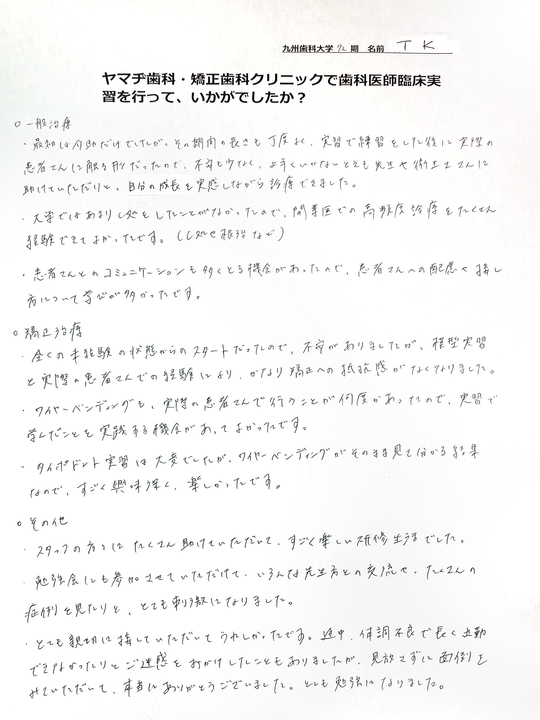 九州歯科大学 72 期 名前 T K
ヤマヂ歯科・矯正歯科クリニックで歯科医師臨床実
習を行って、いかがでしたか？
○ 一般治療
・最初は介助だけでしたが、その期間の長さも丁度よく、実習で練習をした後に実際の
患者さんに触る形だったので、不安も少なく、上手くいかないときも先生や衛生士さんに
助けていただりと、自分の成長を実感しながら診療できました。
・大学ではあまりCR処置をしたことがなかったので、開業医での高頻度診療をたくさん
経験できてよかったです。(CR処や根治など)
・患者さんとのコミュニケーションも多くとる機会があったので、患者さんへの配慮や接し
方について学びが多かったです。
○ 矯正治療
・全くの未経験の状態からのスタートだったので、不安がありましたが、模型実習
と実際の患者さんでの経験により、かなり矯正への抵抗感がなくなりました。
・ワイヤーベンディングも、実際の患者さんで行うことが何度かあったので、実習で
学んだことを実践する機会があってよかったです。
・タイポドント実習は大変でしたが、ワイヤーベンディングがそのまま見て分かる結果
なので、すごく興味深く、楽しかったです。
○ その他
・スタッフの方々にたくさん助けていただいて、すごく楽しい研修生活でした。
・勉強会にも参加させていただけて、いろんな先生方との交流や、たくさんの
症例を見たりと、とても刺激になりました。
・とても親切に接していただいてうれしかったです。途中、体調不良で長く出勤
できなかったりとご迷惑をおかけしたこともありましたが、見放さずに面倒を
みていただいて、本当にありがとうございました。とても勉強になりました。